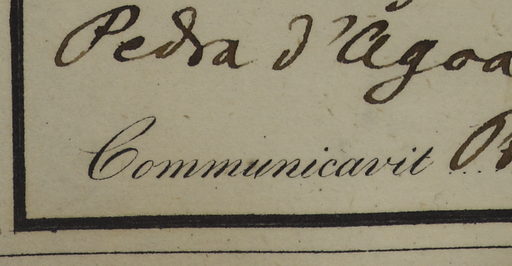 Pedra d'Agoa
Communicavit